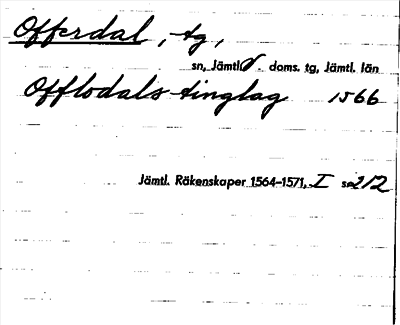 Offerdal, tg,
sn, Jämtl. doms. tg, Jämtl. län
Offlodals tinglag 1566
Jämtl. Räkenskaper 1564–1571, I s. 212